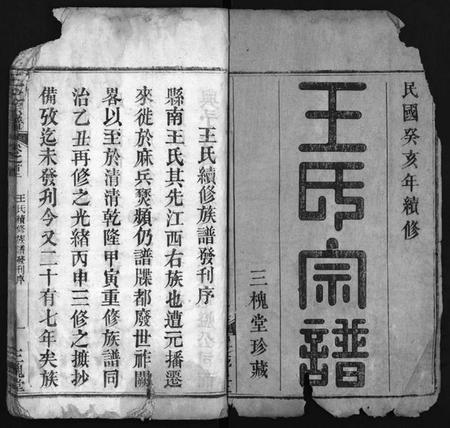 民國癸亥年續修
王氏宗譜
三槐堂珍藏
王氏續修族譜發刊序
縣南王氏其先江西右族也遭元播遷
來徙於麻兵燹頻仍譜牒都廢世祚闕
畧以至於清清乾隆甲寅重修族譜同
治乙丑再修之光緒丙申三修之摭抄
備攷迄未發刋今又二十有七年矣族
王氏續修族譜發刊序
一
三槐堂